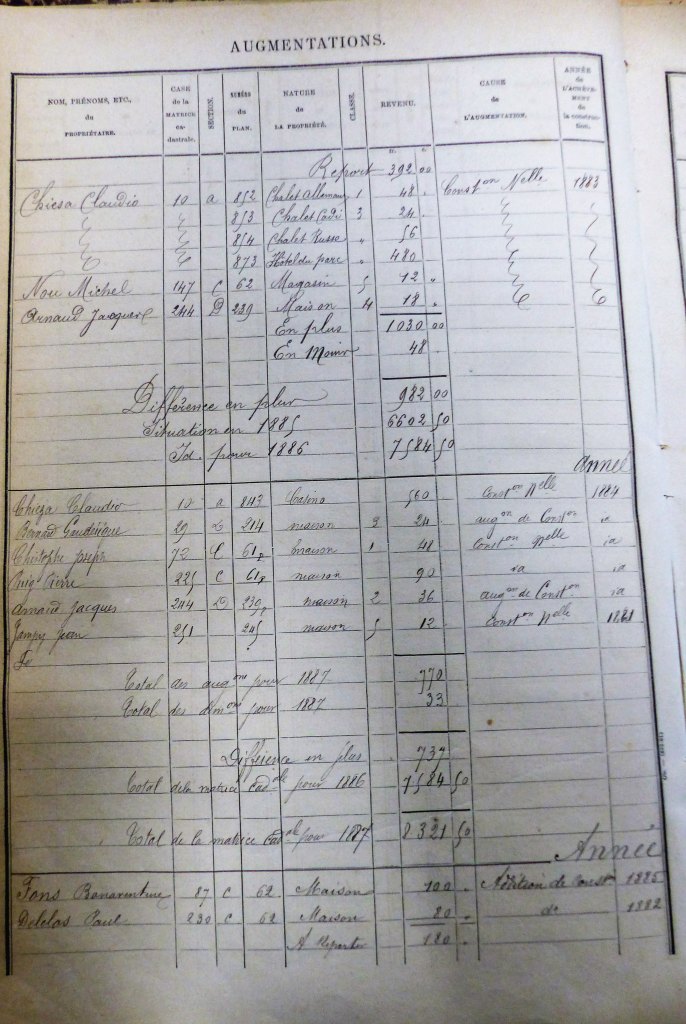 AUGMENTATIONS.
NOM, PRÉNOMS, ETC., du PROPRIÉTAIRE. CASE de la MATRICE ca- dastrale. SECTION. NUMÉRO du PLAN. NATURE de LA PROPRIÉTÉ. CLASSE. REVENU. CAUSE de L'AUGMENTATION. ANNÉE de L'ACHÈVE- MENT de la construc- tion.
fr. c.
Report 392 00
Chiesa Claudio 10 a 852 Chalet Allemand 1 48 " Const on Nelle 1883
" " 853 Chalet Cadi 3 24 " " "
" " 854 Chalet Russe " 56 " "
" " 873 Hôtel du parc " 480 " "
Nou Michel 147 C 62 Magasin 5 12 " " "
Arnaud Jacques 244 D 239 Maison 4 18 " " "
En plus 1030 00
En Moins 48 "
Différence en plus 982 00
Situation en 1885 6602 50
Id. pour 1886 7584 50
Année
Chieza Claudio 10 a 843 Casino 560 Const on Nelle 1884
Bernard Gaudérique 29 D 214 maison 2 24 aug on de Const on id
Christophe Joseph 72 C 61 p maison 1 48 Const on Nelle id
Puig Pierre 225 C 61 p maison 90 id id
Arnaud Jacques 244 D 239 p maison 2 36 aug on de Const on id
Jampy Jean 251 245 maison 5 12 Const on Nelle 1881
Total des aug ons pour 1887 770
Total des dim ons pour 1887 33
Différence en plus 737
Total de la matrice cad ale pour 1886 7584 50
Total de la matrice cad ale pour 1887 8321 50
Année
Fons Bonaventure 87 C 62 Maison 100 " Addition de Const 1885
Delclos Paul 230 C 62 Maison 80 " do 1882
A Reporter 180 "